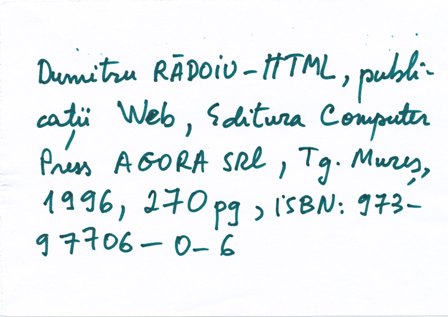 Dumitru RĂDOIU - HTML, publi-
cații Web, Editura Computer
Press AGORA SRL, Tg. Mureș,
1996, 270 pg, ISBN: 973-
97706-0-6